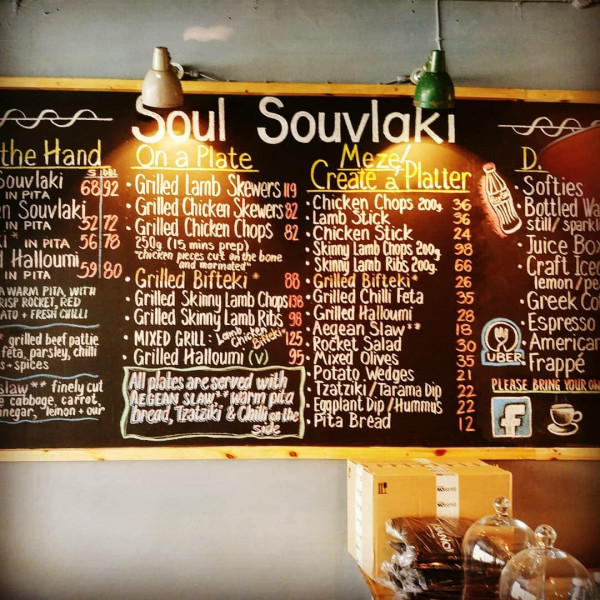 Soul Souvlaki
the Hand
S DBL
Souvlaki 68 92
IN PITA
en Souvlaki
IN PITA 52 72
ki* IN PITA 56 78
d Halloumi
IN PITA 59 80
A WARM PITA, WITH
RISP ROCKET, RED
ATO + FRESH CHILLI
* grilled beef pattie
feta, parsley, chilli
s + spices
slaw** finely cut
e cabbage, carrot,
inegar, lemon + our
On a Plate
• Grilled Lamb Skewers 119
• Grilled Chicken Skewers 82
• Grilled Chicken Chops 82
250g (15 mins prep)
"chicken pieces cut on the bone
and marinated"
• Grilled Bifteki* 88
• Grilled Skinny Lamb Chops 138
• Grilled Skinny Lamb Ribs 98
• MIXED GRILL: Lamb Chicken Bifteki* 125
• Grilled Halloumi (v) 95
All plates are served with
AEGEAN SLAW,** warm pita
bread, Tzatziki & Chilli on the
side
Meze/
Create a Platter
• Chicken Chops 200g 36
• Lamb Stick 36
• Chicken Stick 24
• Skinny Lamb Chops 200g 98
• Skinny Lamb Ribs 200g 66
• Grilled Bifteki* 26
• Grilled Chilli Feta 35
• Grilled Halloumi 28
• Aegean Slaw** 18
• Rocket Salad 30
• Mixed Olives 35
• Potato Wedges 21
• Tzatziki/Tarama Dip 22
• Eggplant Dip/Hummus 22
• Pita Bread 12
D
• Softies
• Bottled Wa
still/sparkl
• Juice Box
• Craft Iced
lemon/pe
• Greek Cof
• Espresso
• American
• Frappé
UBER
PLEASE BRING YOUR OWN
f